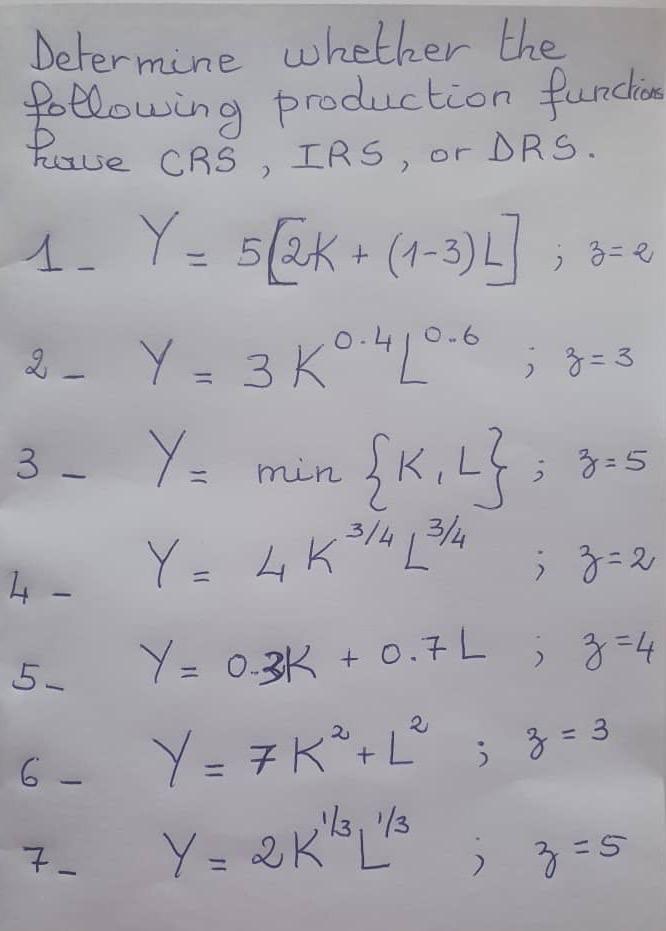 Determine whether the
following production functions
have CRS, IRS, or DRS.
1- Y = 5[2K + (1-3)L] ; z=2
2- Y = 3K^0.4 L^0.6 ; z=3
3- Y = min {K, L} ; z=5
4- Y = 4K^3/4 L^3/4 ; z=2
5- Y = 0.3K + 0.7L ; z=4
6- Y = 7K² + L² ; z=3
7- Y = 2K^1/3 L^1/3 ; z=5